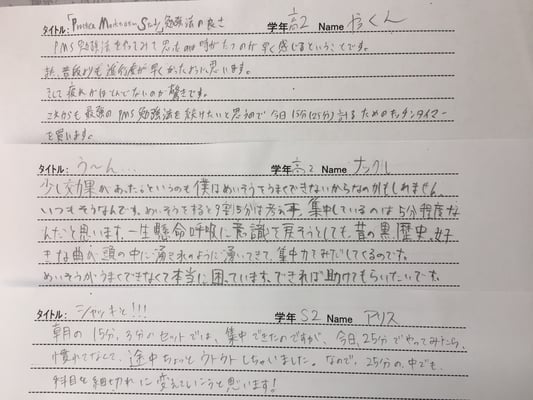 タイトル:「Practice Meditation Study」勉強法の良さ 学年 高2 Name やっくん
PMS勉強法をやってみて思ったのは時がたつのが早く感じるということです。
又、普段よりも進行度が早くかったように思います。
そして疲れがほとんどないのが驚きです。
これからも最強のPMS勉強法を続けたいと思うので今日15分(25分)計るためのキッチンタイマー
を買います。
タイトル: う〜ん... 学年 高2 Name ナックし
少し効果があったというのも僕はめいそうをうまくできないからなのかもしれません。
いつもそうなんです。めいそうをすると9割5分は考え事、集中しているのは5分程度な
んだと思います。一生懸命呼吸に意識を戻そうとしても、昔の黒歴史、好
きな曲が頭の中に湧き水のように湧いてきて、集中力をみだしてくるのです。
めいそうがうまくできなくて本当に困っています。できれば助けてもらいたいです。
タイトル: シャッキっと!!! 学年 S2 Name アリス
朝の15分、3分のセットでは、集中できたのですが、今日、25分でやってみたら、
慣れてなくて、途中ちょっとウトウトしちゃいました。なので、25分の中でも、
科目を細切れに変えていこうと思います!